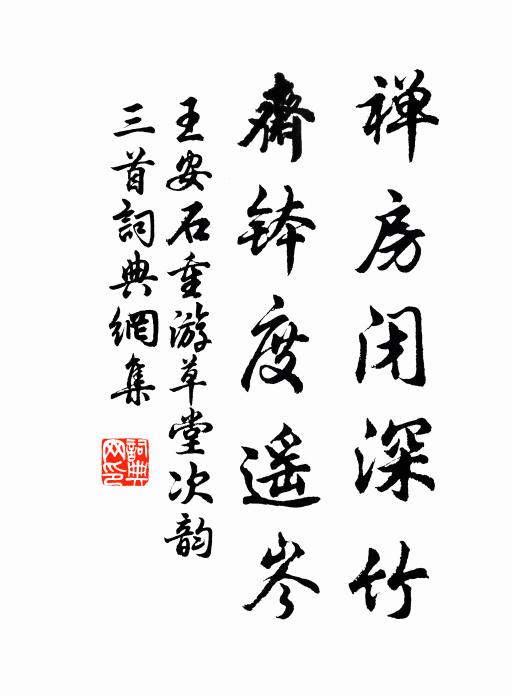 禅房闭深竹
齋钵度遥岑
王安石重游草堂次韵
三首詞典網集
詞典
网印